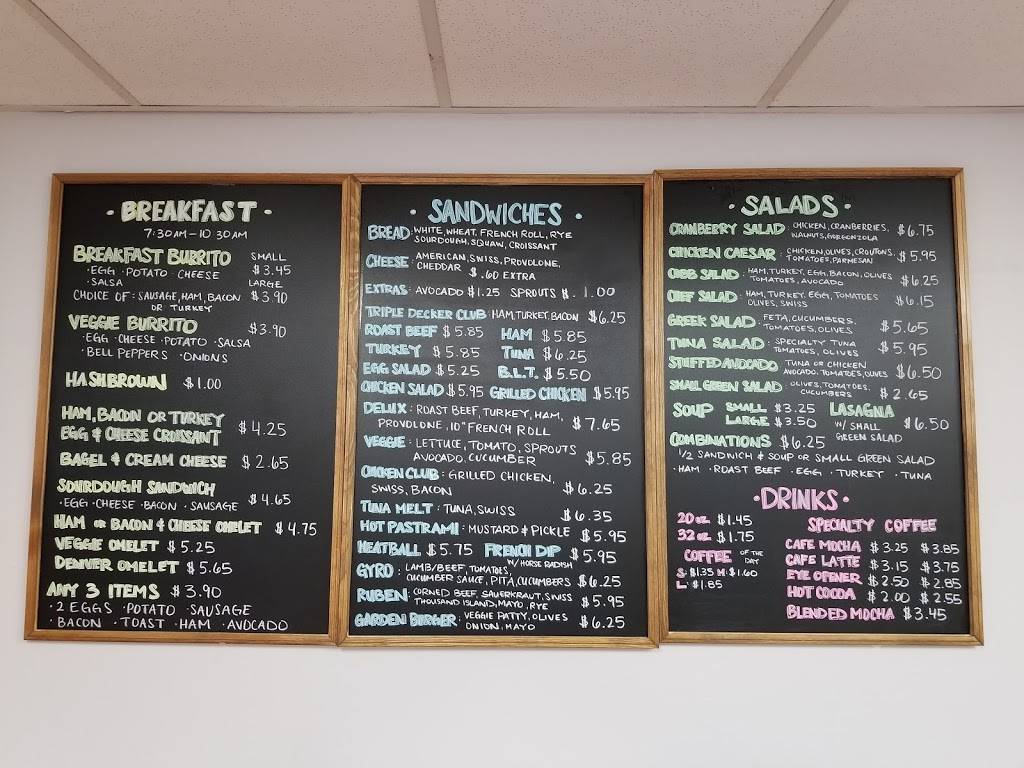 · BREAKFAST ·
7:30AM-10:30AM
BREAKFAST BURRITO SMALL
· EGG · POTATO · CHEESE $3.45
· SALSA LARGE
CHOICE OF: SAUSAGE, HAM, BACON $3.90
OR TURKEY
VEGGIE BURRITO $3.90
· EGG · CHEESE · POTATO · SALSA
· BELL PEPPERS · ONIONS
HASHBROWN $1.00
HAM, BACON OR TURKEY
EGG & CHEESE CROISSANT $4.25
BAGEL & CREAM CHEESE $2.65
SOURDOUGH SANDWICH
· EGG · CHEESE · BACON · SAUSAGE $4.65
HAM OR BACON & CHEESE OMELET $4.75
VEGGIE OMELET $5.25
DENVER OMELET $5.65
ANY 3 ITEMS $3.90
· 2 EGGS · POTATO · SAUSAGE
· BACON · TOAST · HAM · AVOCADO
· SANDWICHES ·
BREAD: WHITE, WHEAT, FRENCH ROLL, RYE
SOURDOUGH, SQUAW, CROISSANT
CHEESE: AMERICAN, SWISS, PROVOLONE,
CHEDDAR $.60 EXTRA
EXTRAS: AVOCADO $1.25 SPROUTS $1.00
TRIPLE DECKER CLUB: HAM, TURKEY, BACON $6.25
ROAST BEEF $5.85 HAM $5.85
TURKEY $5.85 TUNA $6.25
EGG SALAD $5.25 B.L.T. $5.50
CHICKEN SALAD $5.95 GRILLED CHICKEN $5.95
DELUX: ROAST BEEF, TURKEY, HAM,
PROVOLONE, 10" FRENCH ROLL $7.65
VEGGIE: LETTUCE, TOMATO, SPROUTS
AVOCADO, CUCUMBER $5.85
CHICKEN CLUB: GRILLED CHICKEN,
SWISS, BACON $6.25
TUNA MELT: TUNA, SWISS $6.35
HOT PASTRAMI: MUSTARD & PICKLE $5.95
MEATBALL $5.75 FRENCH DIP $5.95
W/ HORSE RADISH
GYRO: LAMB/BEEF, TOMATOES,
CUCUMBER SAUCE, PITA, CUCUMBERS $6.25
RUBEN: CORNED BEEF, SAUERKRAUT, SWISS
THOUSAND ISLAND, MAYO, RYE $5.95
GARDEN BURGER: VEGGIE PATTY, OLIVES
ONION, MAYO $6.25
· SALADS ·
CRANBERRY SALAD: CHICKEN, CRANBERRIES,
WALNUTS, GORGONZOLA $6.75
CHICKEN CAESAR: CHICKEN, OLIVES, CROUTONS,
TOMATOES, PARMESAN $5.95
COBB SALAD: HAM, TURKEY, EGG, BACON, OLIVES
TOMATOES, AVOCADO $6.25
CHEF SALAD: HAM, TURKEY, EGG, TOMATOES
OLIVES, SWISS $6.15
GREEK SALAD: FETA, CUCUMBERS,
TOMATOES, OLIVES $5.65
TUNA SALAD: SPECIALTY TUNA
TOMATOES, OLIVES $5.95
STUFFED AVOCADO: TUNA OR CHICKEN
AVOCADO, TOMATOES, OLIVES $6.50
SMALL GREEN SALAD: OLIVES, TOMATOES,
CUCUMBERS $2.65
SOUP SMALL $3.25 LASAGNA
LARGE $3.50 W/ SMALL $6.50
GREEN SALAD
COMBINATIONS $6.25
1/2 SANDWICH & SOUP OR SMALL GREEN SALAD
· HAM · ROAST BEEF · EGG · TURKEY · TUNA
· DRINKS ·
20 oz $1.45
32 oz $1.75
COFFEE OF THE DAY
S: $1.35 M: $1.60
L: $1.85
SPECIALTY COFFEE
CAFE MOCHA $3.25 $3.85
CAFE LATTE $3.15 $3.75
EYE OPENER $2.50 $2.85
HOT COCOA $2.00 $2.55
BLENDED MOCHA $3.45